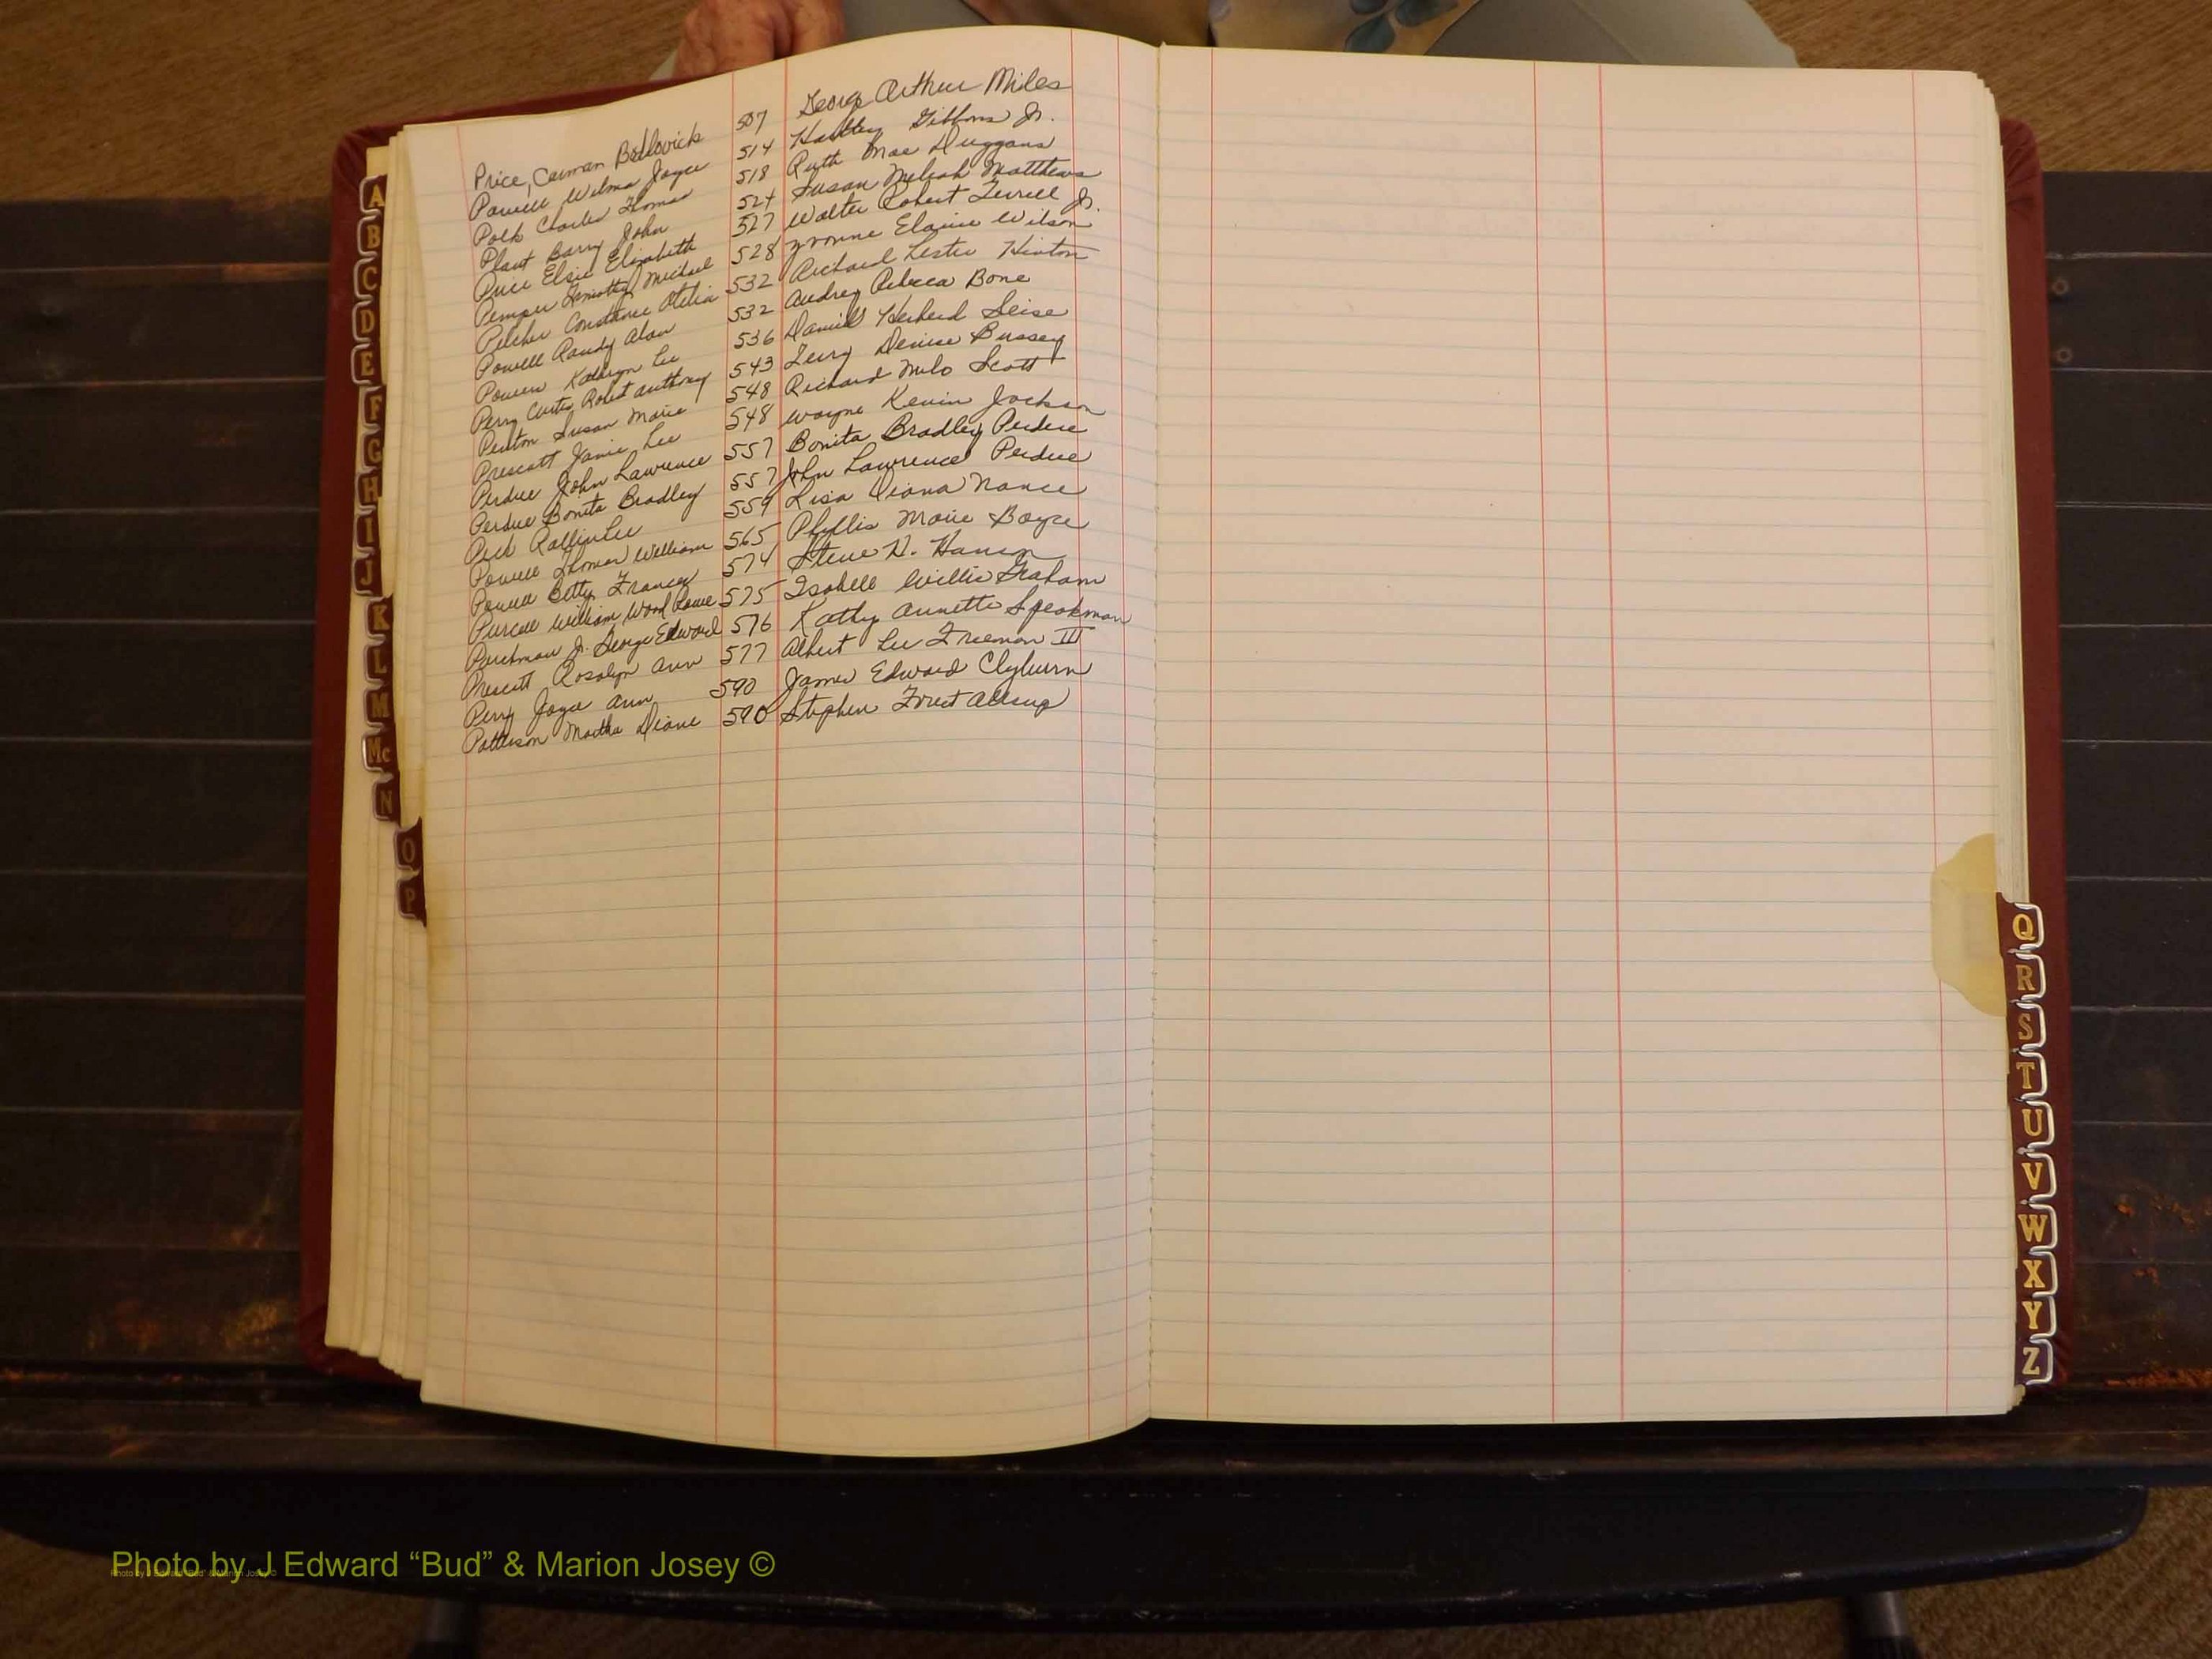 Price, Carman Bedlovick 507 George Arthur Miles
Powell Wilma Joyce 514 Hartley Gibbons Jr.
Polk Charles Thomas 518 Ruth Mae Duggans
Plant Barry John 524 Susan Matthews
Price Elsie Elizabeth 527 Walter Robert Terrell Jr.
Pemper Timothy Michael 528 Yvonne Elaine Wilson
Pilcher Constance Otelia 532 Richard Lester Hinton
Powell Randy Alan 532 Audrey Rebecca Bone
Powers Kathryn Lee 536 Daniel Seise
Perry Curtis Robert Anthony 543 Terry Denise Bussey
Penton Susan Marie 548 Richard Milo Scott
Prescott Janie Lee 548 Wayne Kevin Jackson
Perdue John Lawrence 557 Bonita Bradley Perdue
Perdue Bonita Bradley 557 John Lawrence Perdue
Peck Rollin Lee 559 Lisa Diana Nance
Powell Thomas William 565 Phyllis Marie Boyce
Powell Betty Frances 574 Steve N. Hanson
Purcell William Wood Lowe 575 Isabell Willis Graham
Parchman Jr. George Edward 576 Kathy Annette Speakman
Prescott Rosalyn Ann 577 Albert Lee Freeman III
Perry Joyce Ann 590 James Edward Clyburn
Patterson Martha Diane 590 Stephen Forest Allsup
A
B
C
D
E
F
G
H
I
J
K
L
M
Mc
N
O
P
Q
R
S
T
U
V
W
X
Y
Z
Photo by J Edward “Bud” & Marion Josey ©
Photo by J Edward “Bud” & Marion Josey ©